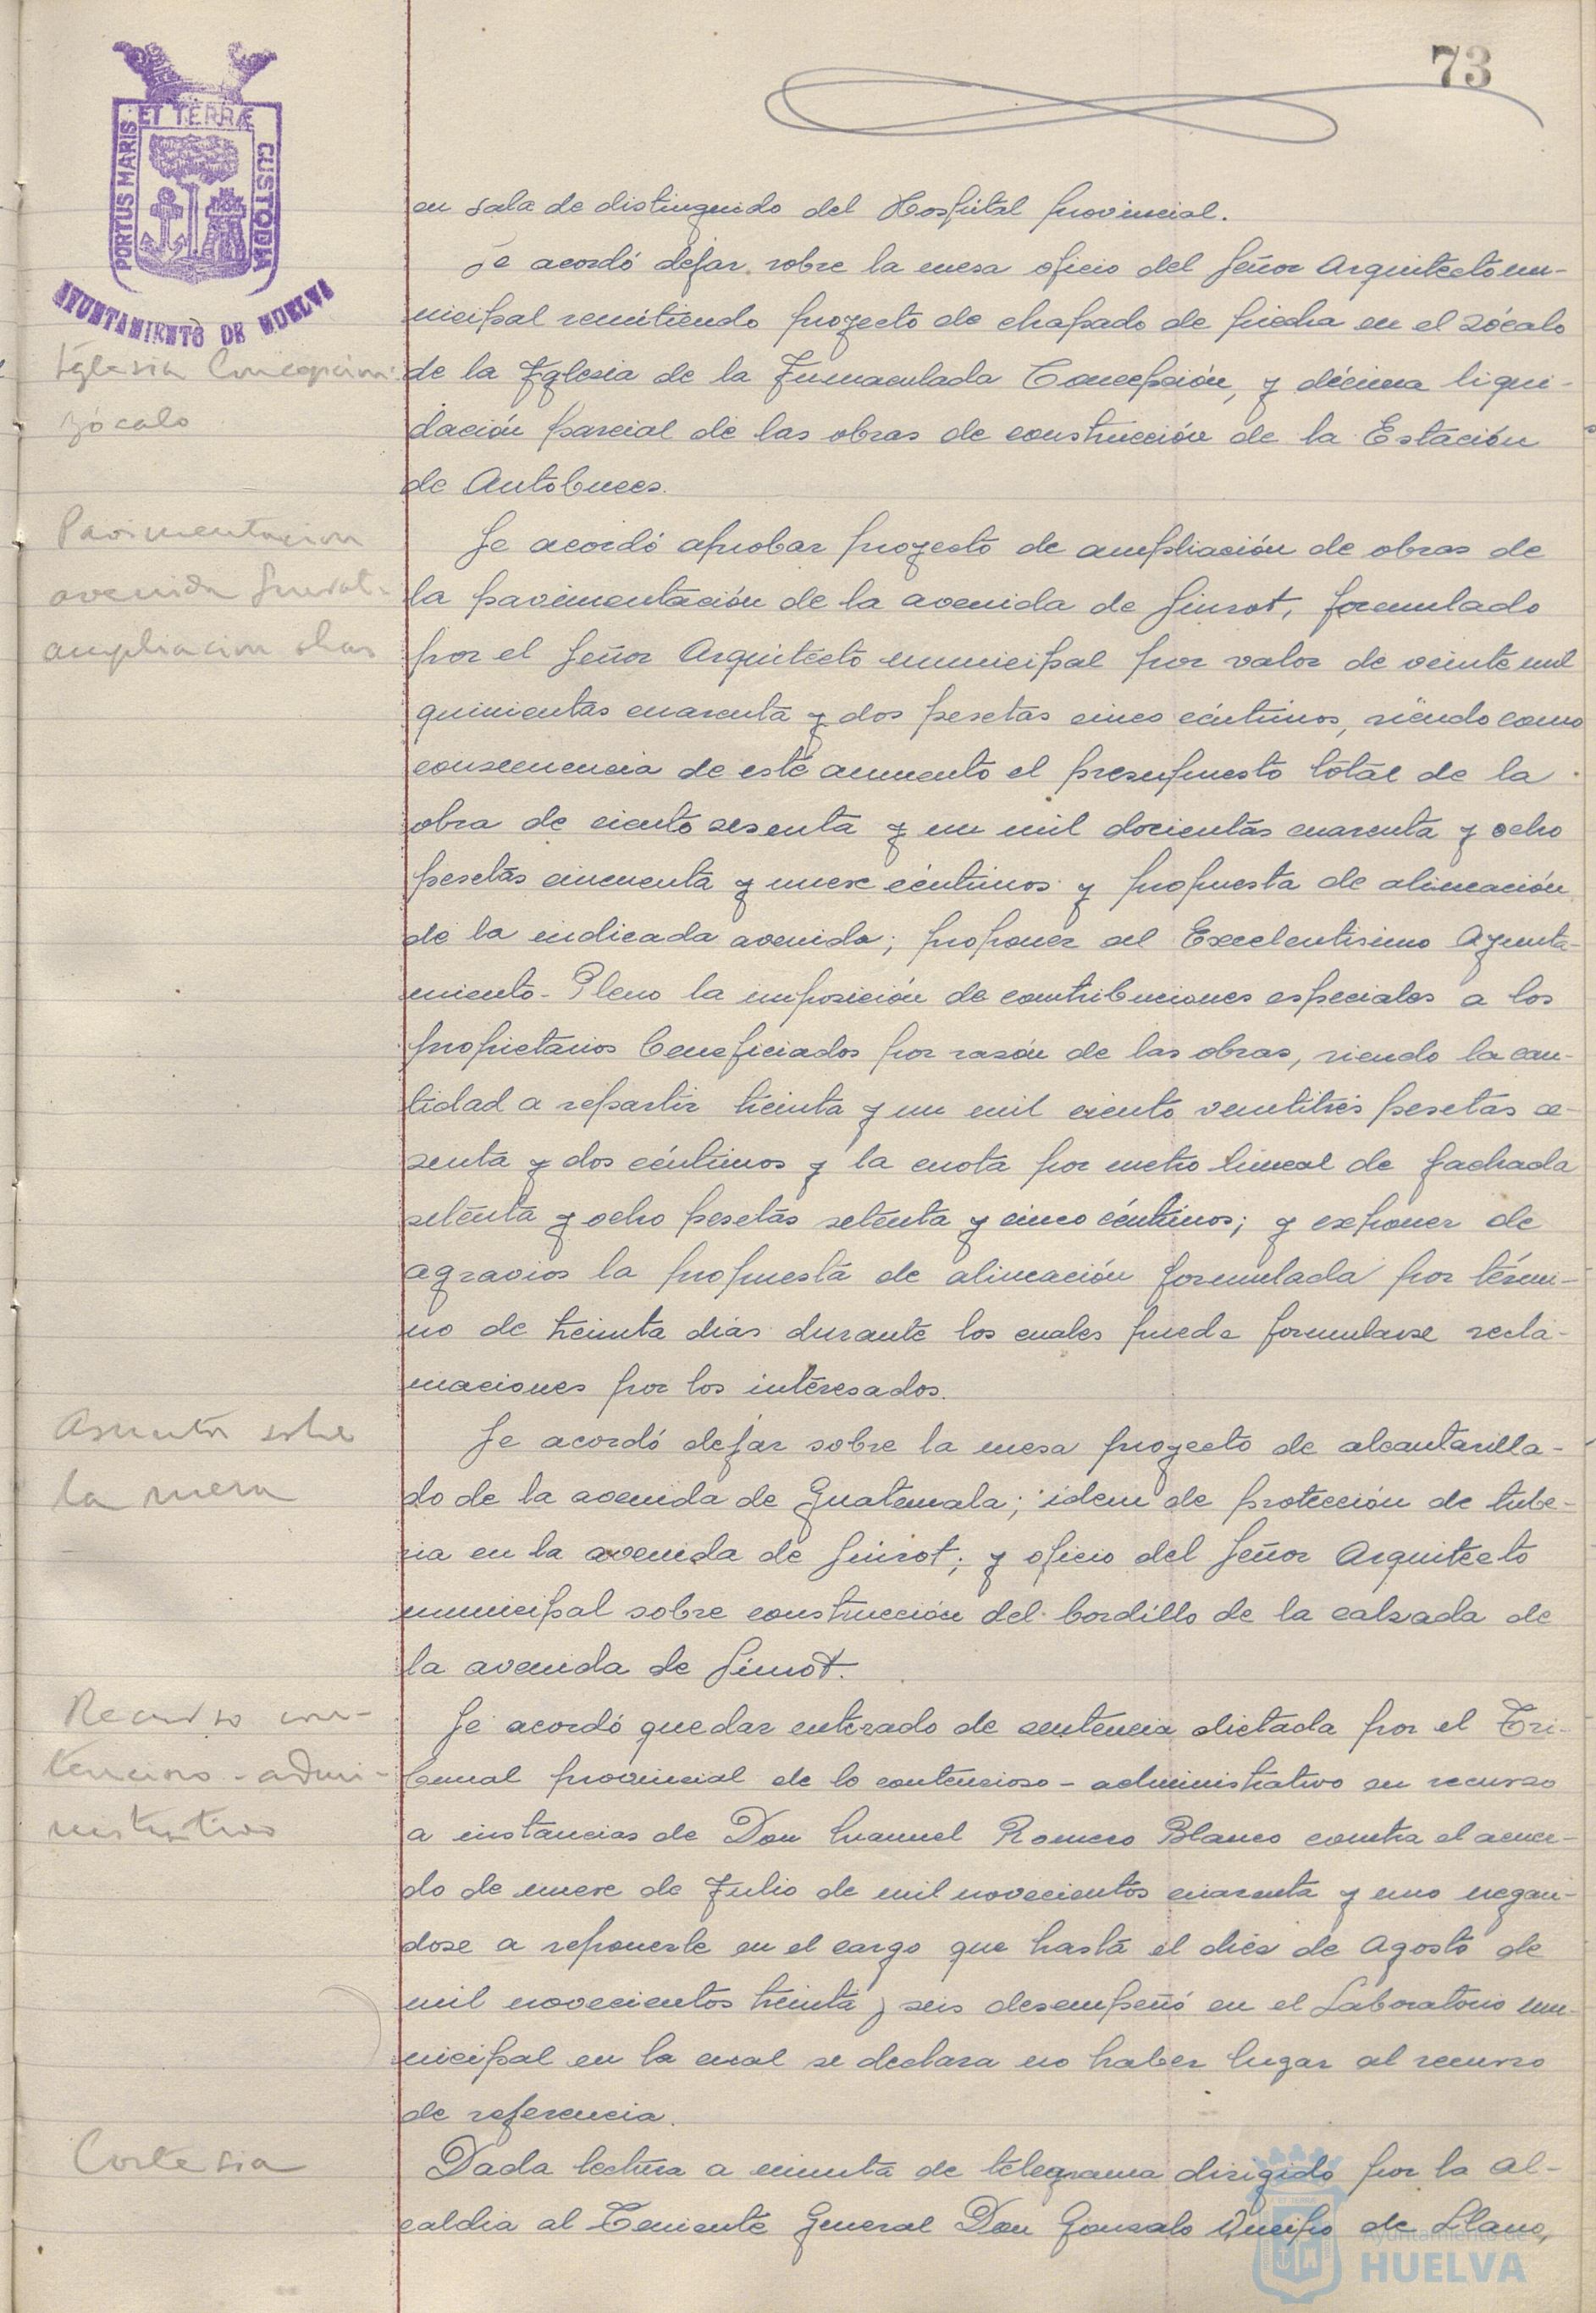 73
ET TERRÆ
PORTUS MARIS
CUSTODIA
AYUNTAMIENTO DE HUELVA
en sala de distinguido del Hospital provincial.
Se acordó dejar sobre la mesa oficio del Señor Arquitecto mu-
nicipal remitiendo proyecto de chapado de piedra en el zócalo
Iglesia Concepción
zócalo
de la Iglesia de la Inmaculada Concepción, y décima liqui-
dación parcial de las obras de construcción de la Estación
de Autobuses.
Pavimentacion
avenida Siurot-
ampliacion obras
Se acordó aprobar proyecto de ampliación de obras de
la pavimentación de la avenida de Siurot, formulado
por el Señor Arquitecto municipal por valor de veinte mil
quinientas cuarenta y dos pesetas cinco céntimos, siendo como
consecuencia de este aumento el presupuesto total de la
obra de ciento sesenta y un mil doscientas cuarenta y ocho
pesetas cincuenta y nueve céntimos y propuesta de alineación
de la indicada avenida; proponer al Excelentisimo Ayunta-
miento-Pleno la imposición de contribuciones especiales a los
propietarios beneficiados por razón de las obras, siendo la can-
tidad a repartir treinta y un mil ciento ventitrés pesetas se-
senta y dos céntimos y la cuota por metro lineal de fachada
setenta y ocho pesetas setenta y cinco céntimos; y exponer de
agravios la propuesta de alineación formulada por térmi-
no de treinta dias durante los cuales puede formularse recla-
maciones por los interesados.
Asuntos sobre
la mesa
Se acordó dejar sobre la mesa proyecto de alcantarilla-
do de la avenida de Guatemala; idem de protección de tube-
ria en la avenida de Siurot; y oficio del Señor Arquitecto
municipal sobre construcción del bordillo de la calzada de
la avenida de Siurot.
Recurso con-
tencioso-admi-
nistrativo
Se acordó quedar enterado de sentencia dictada por el Tri-
bunal provincial de lo contencioso-administrativo en recurso
a instancias de Don Manuel Romero Blanco contra el acuer-
do de nueve de Julio de mil novecientos cuarenta y uno negan-
dose a reponerle en el cargo que hasta el diez de Agosto de
mil novecientos treinta y seis desempeñó en el Laboratorio mu-
nicipal en la cual se declara no haber lugar al recurso
de referencia.
Cortesia
Dada lectura a minuta de telegrama dirigido por la Al-
caldia al Teniente General Don Gonzalo Queipo de Llano,
Ayuntamiento de
HUELVA